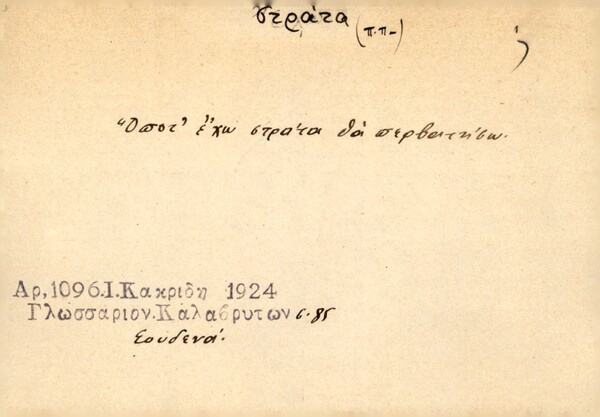 στράτα (π.π-)
"Όποτ' ἔχω στράτα θὰ περβατήσω.
Αρ,1096.Ι.Κακριδη 1924
Γλωσσαριον.Καλαβρυτων σ. 85
Σουδενά.